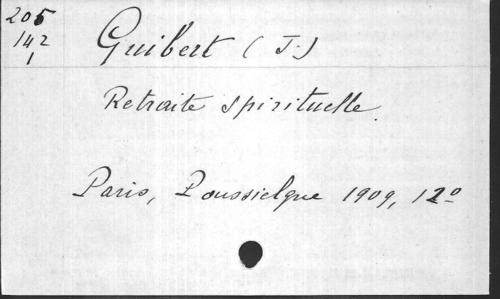 205
142
1
Guibert (J.)
Retraite spirituelle.
Paris, Poussielgue 1909, 12º